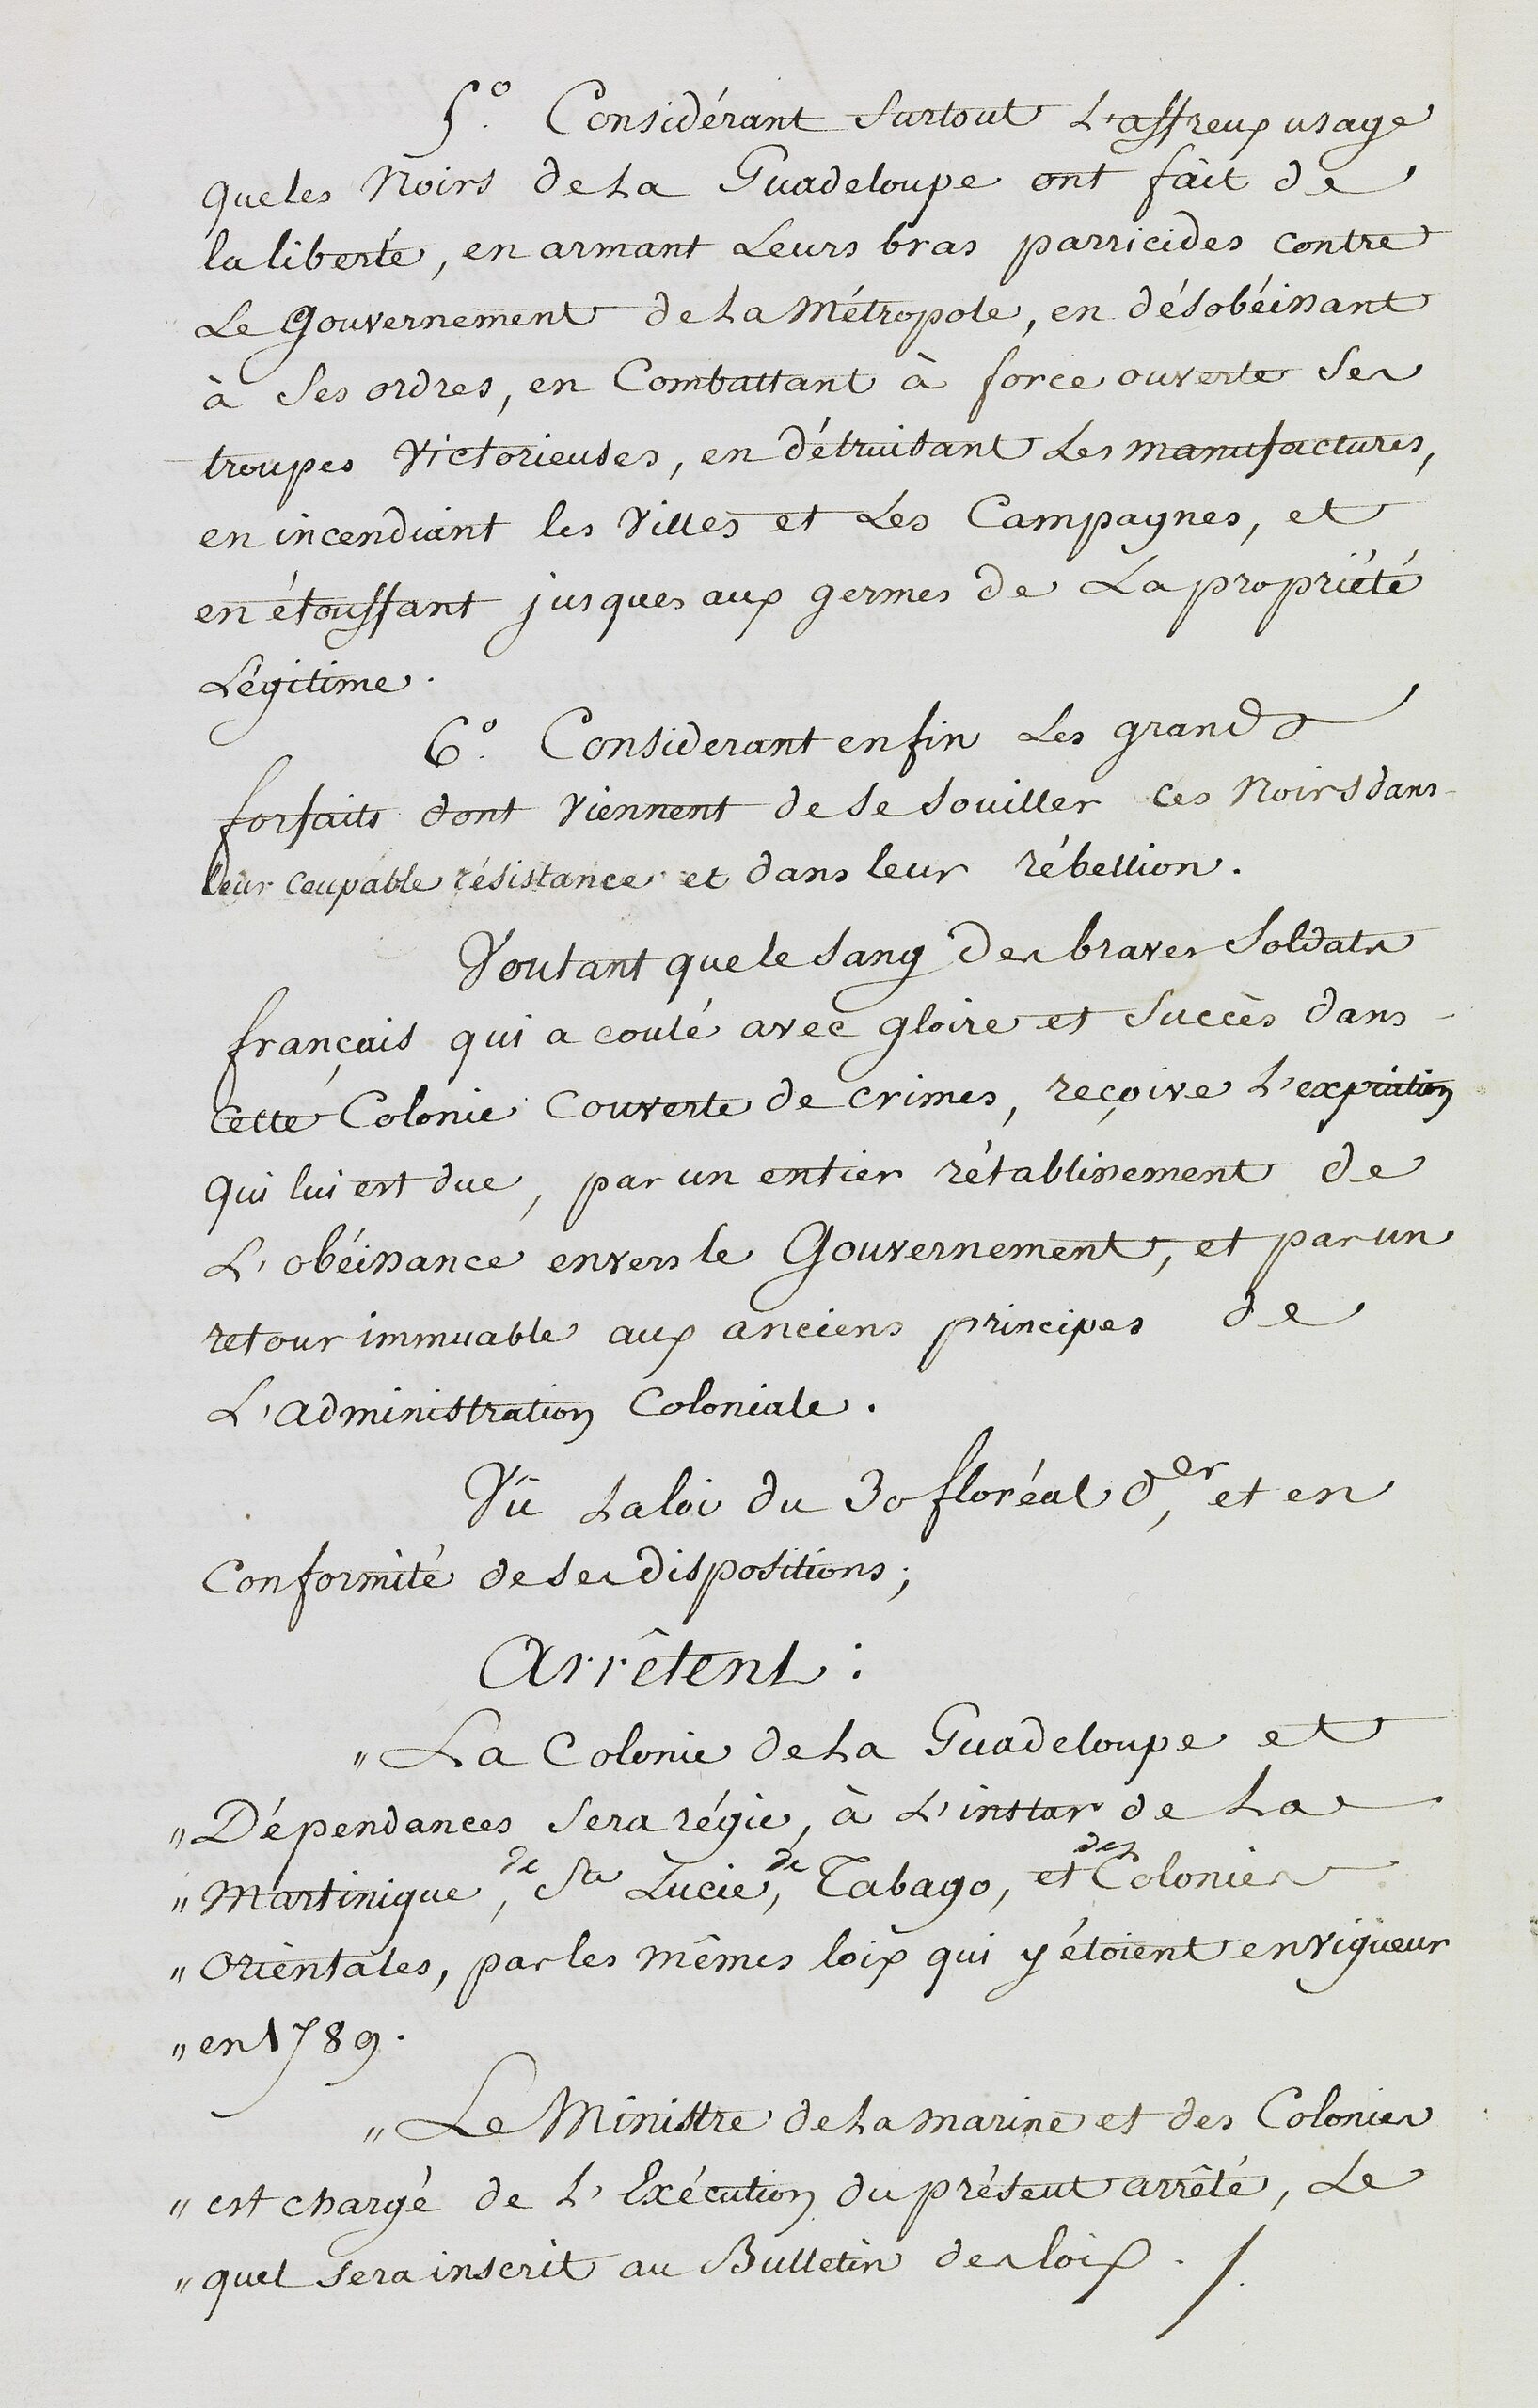 5°. Considérant surtout l'affreux usage
que les Noirs de la Guadeloupe ont fait de
la liberté, en armant leurs bras parricides contre
le Gouvernement de la Métropole, en désobéissant
à ses ordres, en Combattant à force ouverte ses
troupes Victorieuses, en détruisant les manufactures,
en incendiant les Villes et les Campagnes, et
en étouffant jusques aux germes de la propriété
légitime.
6°. Considerant enfin les grands
forfaits dont viennent de se souiller ces Noirs dans
leur coupable résistance et dans leur rébellion.
Voulant que le sang des braves Soldats
français qui a coulé avec gloire et succès dans
cette Colonie Couverte de crimes, reçoive l'expiation
qui lui est due, par un entier rétablissement de
l'obéissance envers le Gouvernement, et par un
retour immuable aux anciens principes de
l'administration Coloniale.
Vû la loi du 30 floréal der, et en
Conformité de ses dispositions;
Arrêtent :
" La Colonie de la Guadeloupe et
" Dépendances sera régie, à l'instar de la
" Martinique, de Ste Lucie, de Tabago, et des Colonies
" Orientales, par les mêmes loix qui y étoient en vigueur
" en 1789.
" Le Ministre de la marine et des Colonies
" est chargé de l'Exécution du présent arrêté, le
" quel sera inscrit au Bulletin des loix. /.